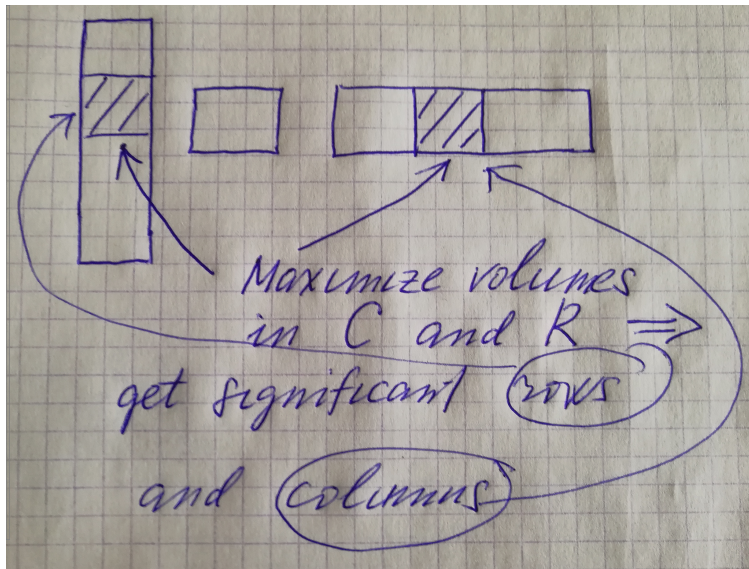 Maximize volumes
in C and R ⇒
get significant rows
and columns